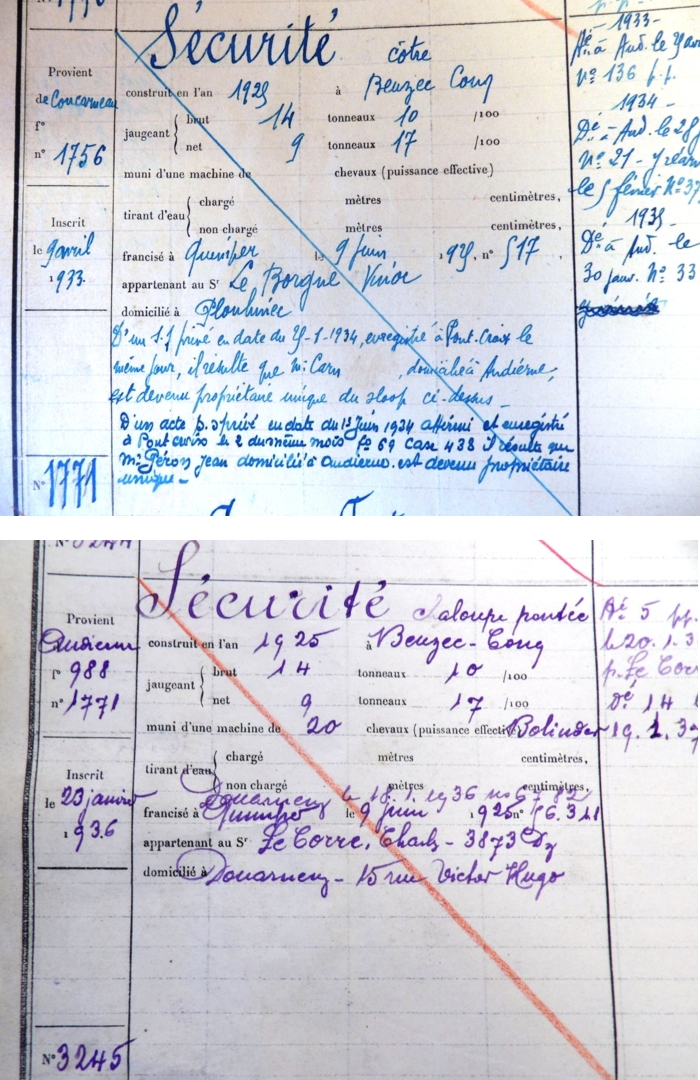 Sécurité côtre
Provient
de Concarneau
f°
n° 1756
Inscrit
le 9 avril
1933.
N° 1771
construit en l'an 1925 à Beuzec Conq
jaugeant brut 14 tonneaux 10 /100
net 9 tonneaux 17 /100
muni d'une machine de chevaux (puissance effective)
tirant d'eau chargé mètres centimètres,
non chargé mètres centimètres,
francisé à Quimper le 9 Juin 1925, n° 517,
appartenant au Sr Le Borgne
domicilié à Plouhinec
D'un s.s privé en date du 25-1-1934, enregistré à Pont-Croix le
même jour, il résulte que Mr Carn, domicilié à Audierne,
est devenu propriétaire unique du sloop ci-dessus -
D'un acte p. s privé en date du 1er Juin 1934 affirmé et enregistré
à Pont croix le 2 du même mois f° 69 case 438 il résulte que
Mr Péron Jean domicilié à Audierne est devenu propriétaire
unique -
- 1933 -
n° 136 p.p.
1934 -
Dé à Aud. le 25
N° 21 -
le 5 février N° 37
1935
Dé à Aud. le
30 janv. N° 33
Sécurité Chaloupe pontée
Provient
Audierne
f° 988
n° 1771
Inscrit
le 23 janvier
1936
N° 3245
construit en l'an 1925 à Beuzec-Conq
jaugeant brut 14 tonneaux 10 /100
net 9 tonneaux 17 /100
muni d'une machine de 20 chevaux (puissance effective) Bolinder
tirant d'eau chargé mètres centimètres,
non chargé mètres centimètres,
Douarnenez le 18.1.1936 no 6782
francisé à Quimper le 9 Juin 1925 n°
appartenant au Sr Le Corre, Charles - 3873 Dz
domicilié à Douarnenez - 15 rue Victor Hugo
Dé 5 pp.
le 20. 1. 3
p. Le Corr
Dé 14
19. 1. 37